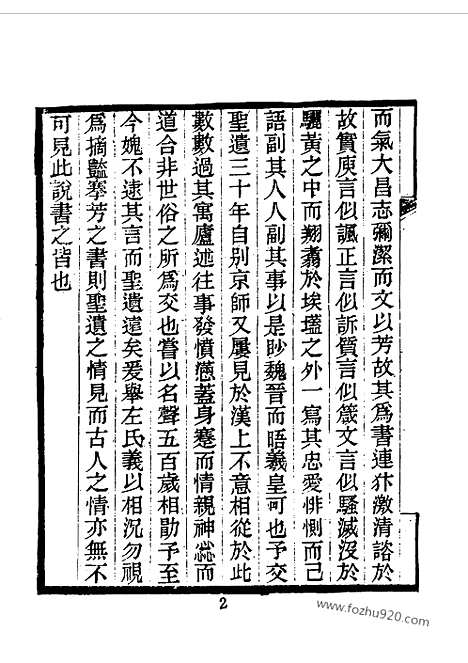 而氣大昌志彌潔而文以芳故其爲書連犿激清諮於
故實庾言似諷正言似訴質言似箴文言似騷滅沒於
驪黃之中而翔翥於埃壒之外一寫其忠愛悱惻而己
語副其人人副其事以是眇魏晉而晤羲皇可也予交
聖遺三十年自別京師又屢見於漢上不意相從於此
數數過其寓廬述往事發憤懣蓋身蹇而情親神惢而
道合非世俗之所爲交也嘗以名聲五百歲相勖予至
今媿不逮其言而聖遺遠矣爰舉左氏義以相況勿視
爲摘豔搴芳之書則聖遺之情見而古人之情亦無不
可見此說書之皆也
2
www.fozhu920.com